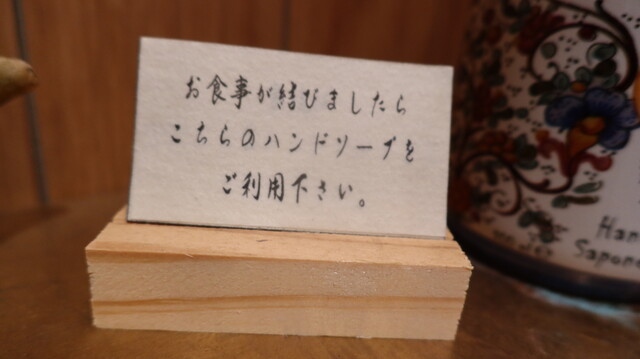 お食事が結びましたら
こちらのハンドソープを
ご利用下さい。
Han
Sapone